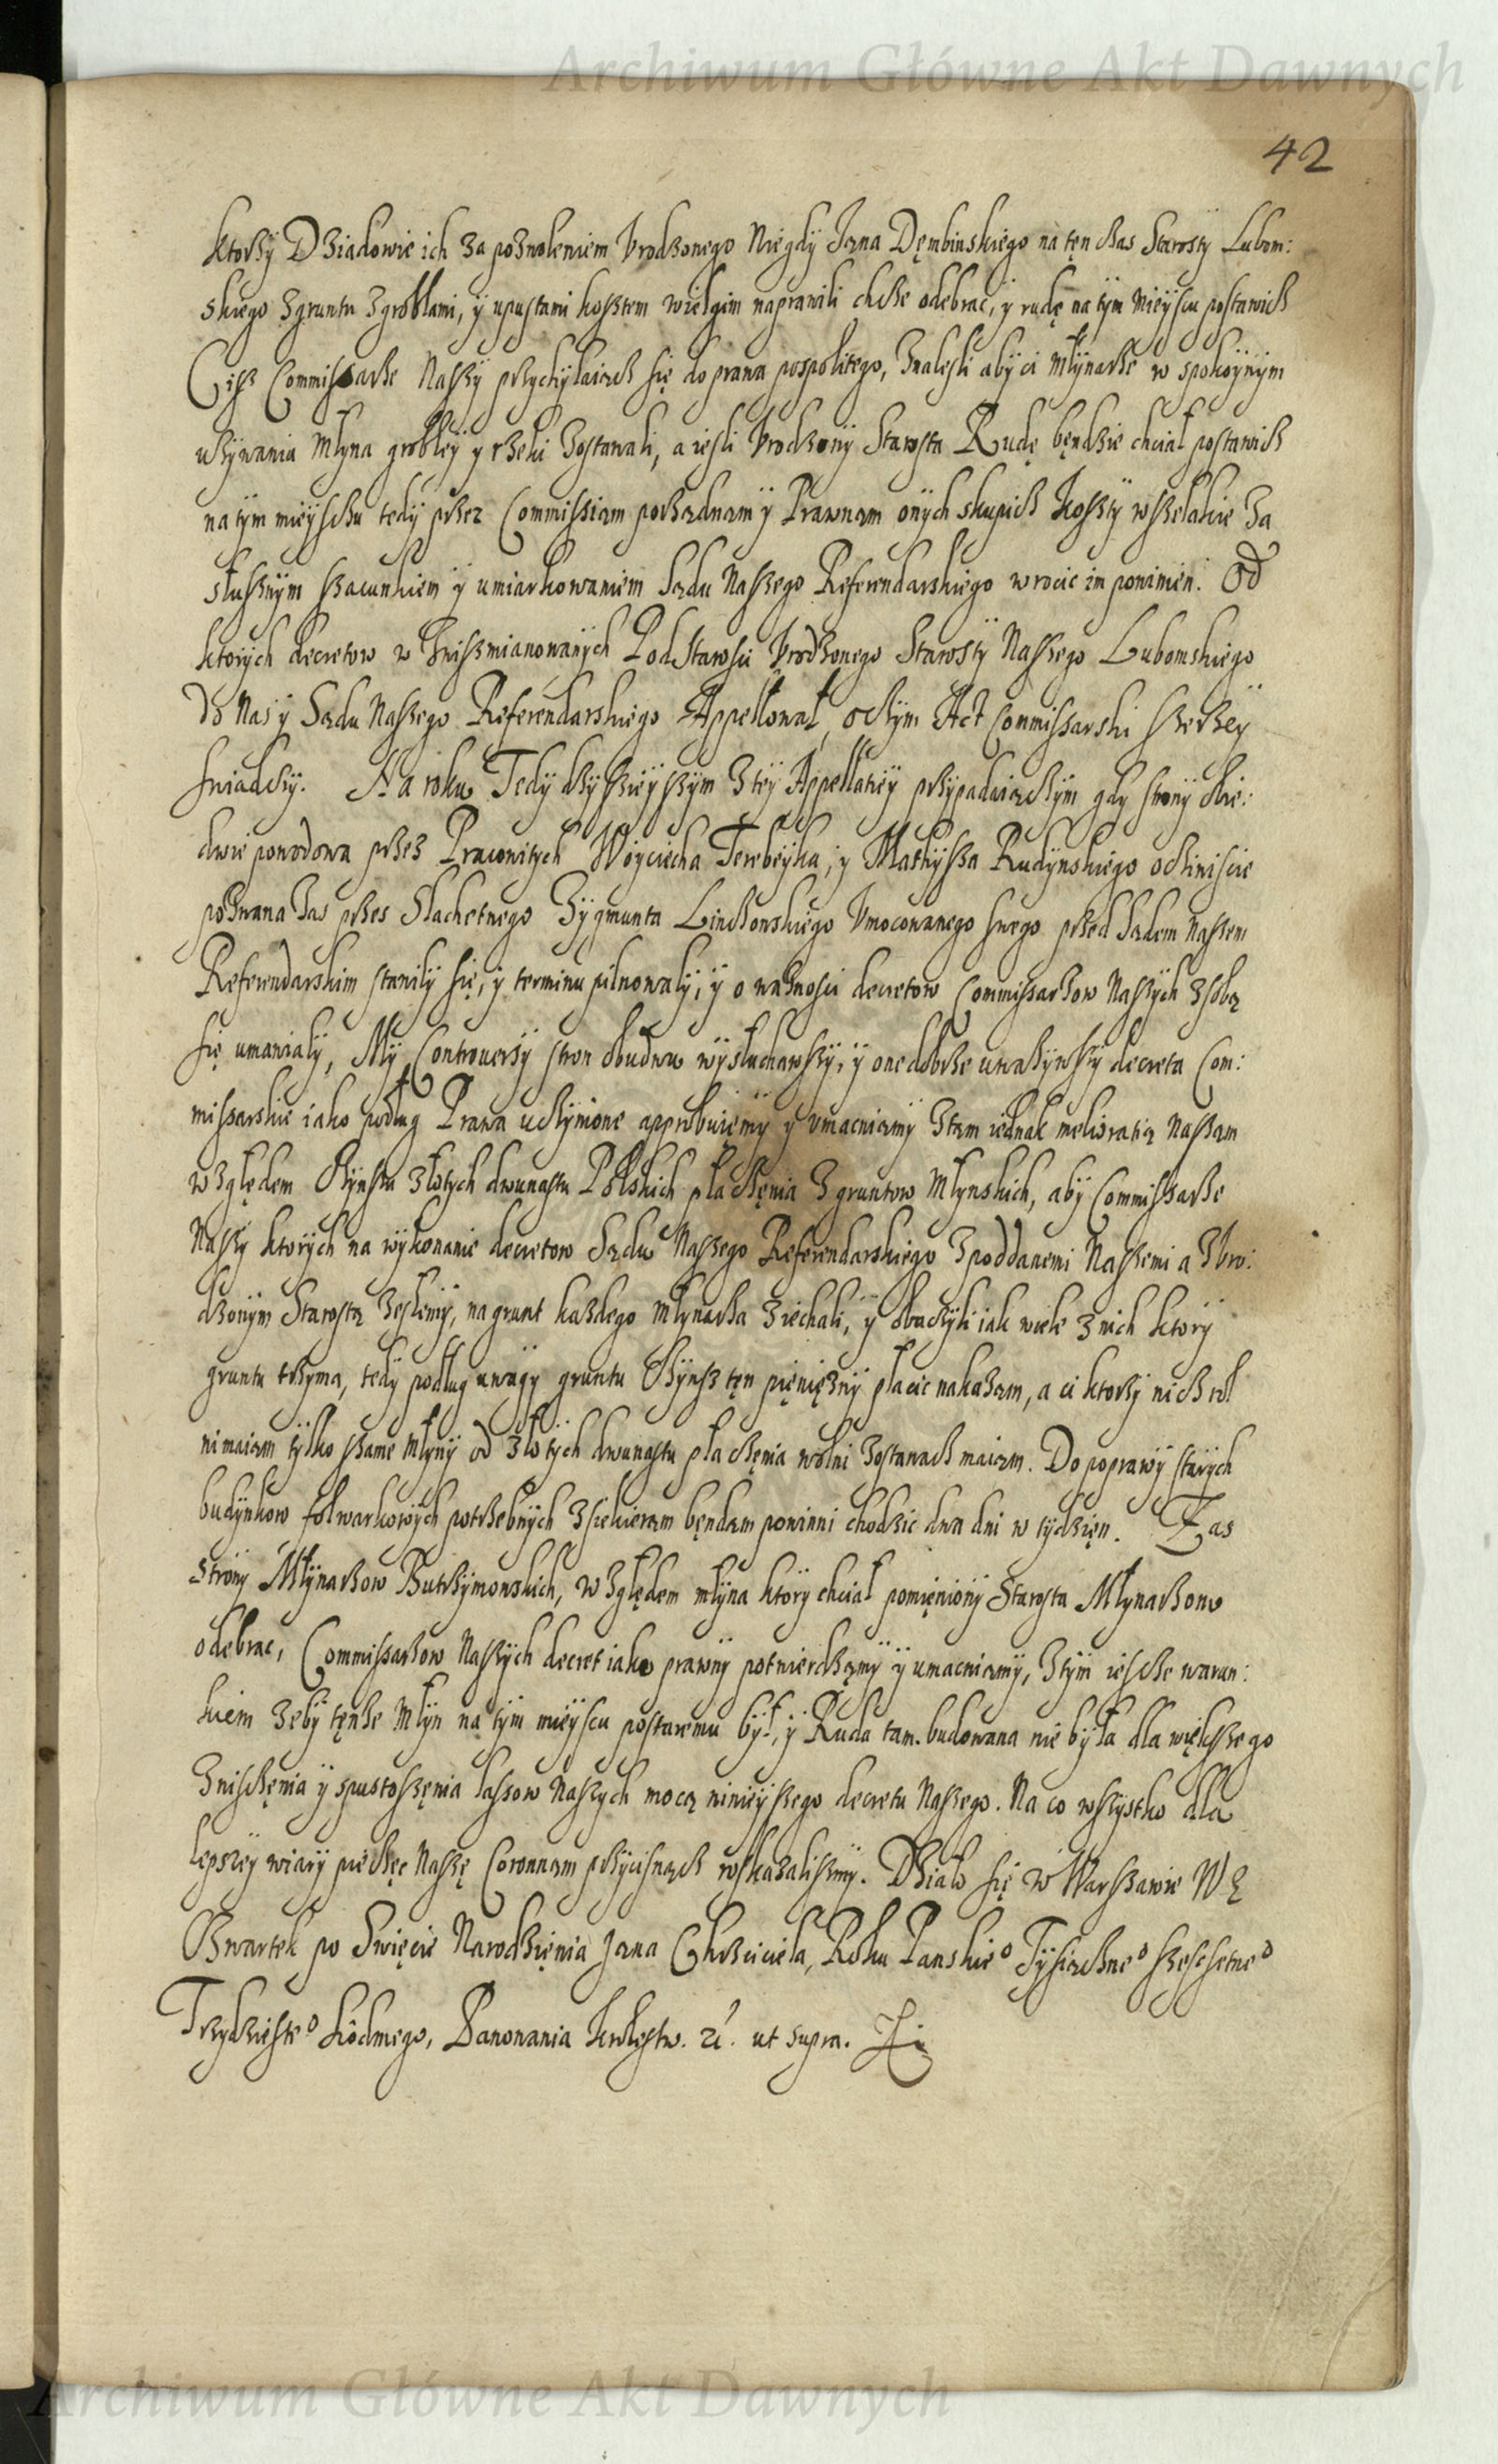 Archiwum Główne Akt Dawnych
42
ktorzy Dziadowie ich za pozwoleniem Vrodzonego Niegdy Jana Dęmbinskiego na tęn czas Starosty Lubom:
skiego z gruntu z groblami, y upustami kosztem wielgim naprawili chcze odebrac, y rudę na tym mieyscu postawicz
Ciż Commissarze Naszy przychylaiącz się do prawa pospolitego, znaleszli aby ci młynarze w spokoynym
używania Młyna grobley y rzeki zostawali, a iesli Vrodzony Starosta Rudę będzie chciał postawicz
na tym mieysczu tedy przez Commissiam porządnam y Prawnam onych skupicz koszty wszelakie za
słusznym szacunkiem y umiarkowaniem Sądu Naszego Referendarskiego wrocic im powinien. Od
ktorych decretow w zwiszmianowanych Podstarosci Vrodzonego Starosty Naszego Lubomskiego
do Nas y Sądu Naszego Referendarskiego Appellował, o czym Act Commissarski szerzey
swiadczy. Na roku Tedy dzyszieyszym z tey Appellatiey przypadaiączym gdy strony obie:
dwie powodowa przez Pracowitych Woyciecha Terebeyka, y Mathysza Rudynskiego oczwiscie
pozwana zas przes Slachetnego Zygmunta Linczowskiego Vmocowanego swego przed Sądem Naszem
Referendarskim stawily się, y terminu pilnowaly, y o ważnosci decretow Commissarzow Naszych z sobą
się umawialy, My Controuersy stron obudwu wysłuchawszy, y one dobrze uważywszy decreta Com:
missarskie iako podług Prawa uczynione approbuięmy y vmacniamy z tam iednak melioratią Naszam
względem Czynszu złotych dwunastu Polskich płaczęnia z gruntow Młynskich, aby Commissarze
Naszy ktorych na wykonanie decretow Sądu Naszego Referendarskiego z poddanemi Naszemi a z Vro:
dzonym Starostą zeszlemy, na grunt każdego Młynarza ziechali, y obaczyli iak wiele z nich ktory
gruntu trzyma, tedy podług uwagy gruntu Czynsz tęn pięniężny płacic nakażam, a ci ktorzy nicz rol
ni maiam tylko szame Młyny od złotych dwunastu płaczęnia wolni zostawacz maiam. Do poprawy starych
budynkow folwarkowych potrzebnych z siekieram będam powinni chodzic dwa dni w tydzięn. Zas
strony Młynarzow Butrzymowskich, względem młyna ktory chciał pomięniony Starosta Młynarzom
odebrac, Commissarzow Naszych decret iako prawny potwierdzamy y umacniamy, z tym iescze warun:
kiem zeby tęnze Młyn na tym mieyscu postaremu był, y Ruda tam budowana nie była dla więkssego
zniszczęnia y spustoszęnia lassow Naszych mocą ninieyszego decretu Naszego. Na co wszystko dla
lepszey wiary pieczęc Naszę Coronnam przycisnącz rozkazalismy. Działo się w Warszawie We
Czwartek po Swięcie Narodzięnia Jana Chrzciciela, Roku Panskieo Tysiączneo szescsetneo
Trzydziesteo siodmego, Panowania Krolestw. ut supra.
Archiwum Główne Akt Dawnych